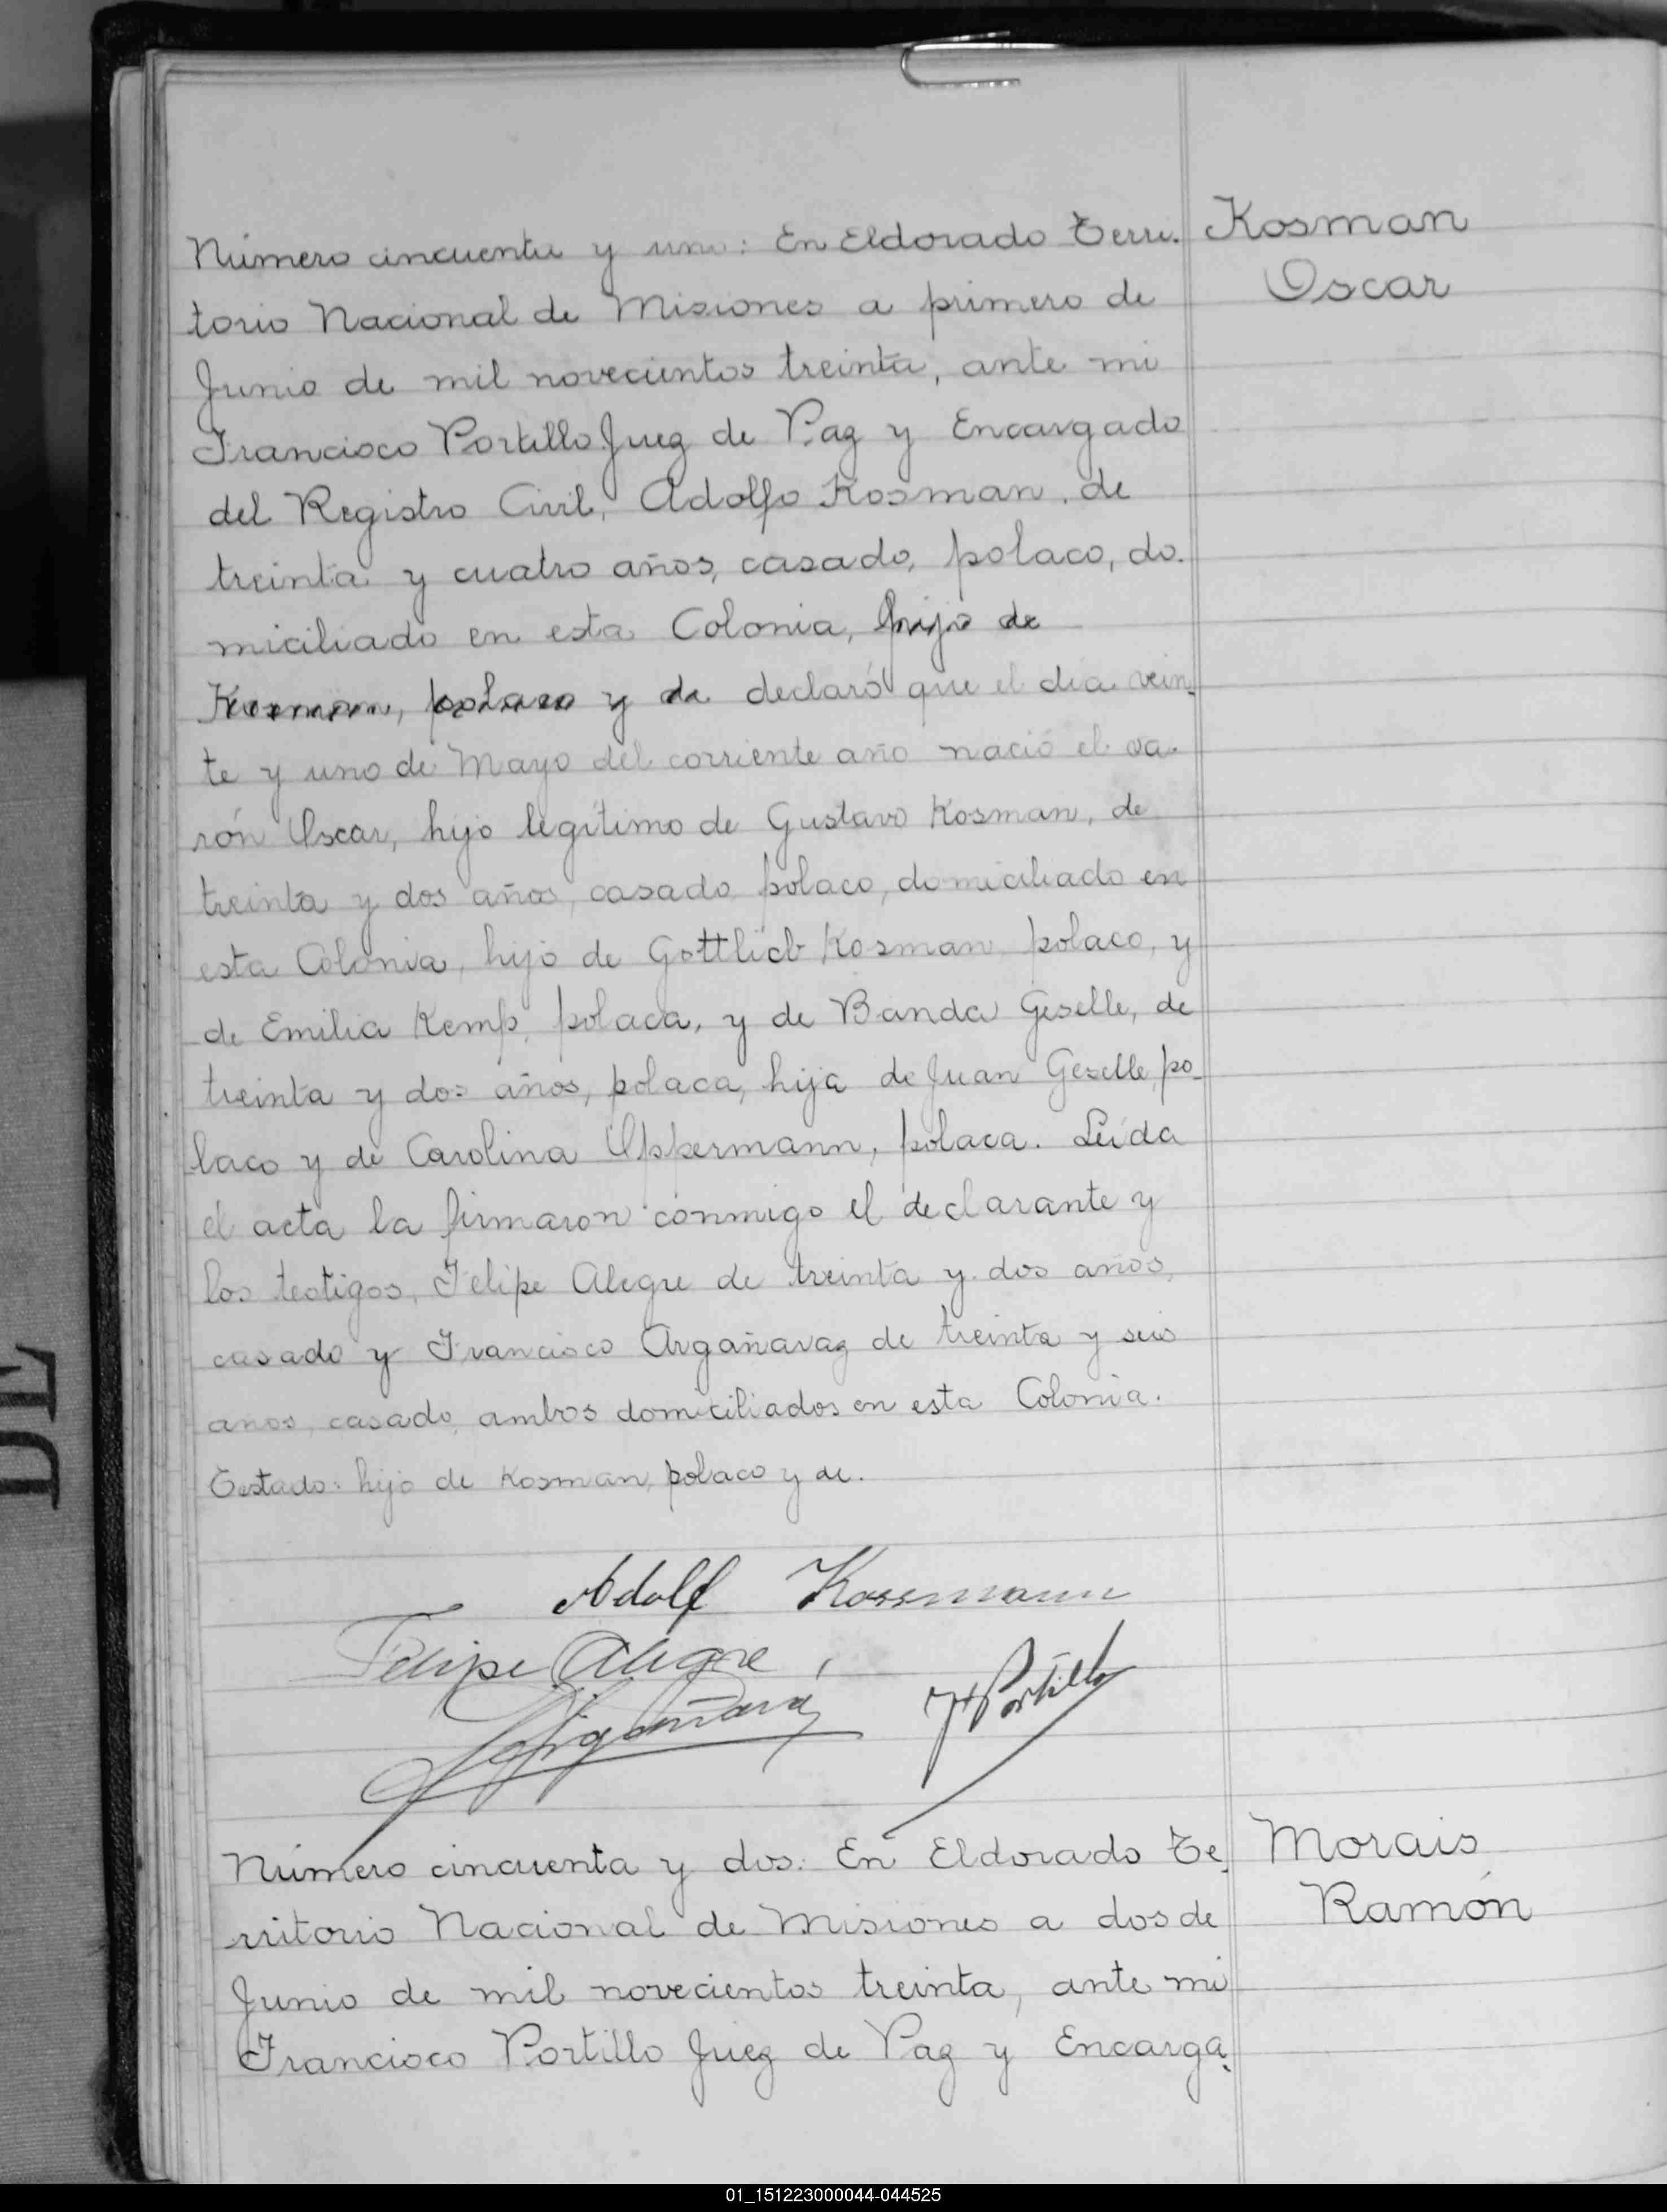 Kosman
Oscar
Número cincuenta y uno: En Eldorado Terri-
torio Nacional de Misiones a primero de
Junio de mil novecientos treinta, ante mi
Francisco Portillo Juez de Paz y Encargado
del Registro Civil, Adolfo Kosman, de
treinta y cuatro años, casado, polaco, do-
miciliado en esta Colonia, hijo de
Kosman, polaco y de declaró que el día vein-
te y uno de Mayo del corriente año nació el va-
rón Oscar, hijo legítimo de Gustavo Kosman, de
treinta y dos años, casado, polaco, domiciliado en
esta Colonia, hijo de Gottlieb Kosman, polaco, y
de Emilia Kemp, polaca, y de Banda Geselle, de
treinta y dos años, polaca, hija de Juan Geselle, po-
laco y de Carolina Oppermann, polaca. Leída
el acta la firmaron conmigo el declarante y
los testigos, Felipe Alegre de treinta y dos años,
casado y Francisco Argañaraz de treinta y seis
años, casado, ambos domiciliados en esta Colonia.
Testado: hijo de Kosman, polaco y de.
Adolf Kossmann
Felipe Alegre
F Argañaraz
F Portillo
Morais
Ramón
Número cincuenta y dos: En Eldorado Te-
rritorio Nacional de Misiones a dos de
Junio de mil novecientos treinta, ante mi
Francisco Portillo Juez de Paz y Encarga-
DE
01_151223000044-044525